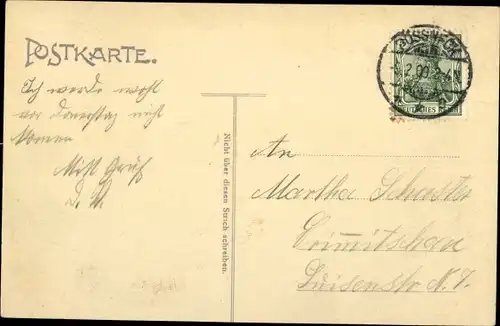 POSTKARTE.
Ich werde wohl
vor Donerstag nicht
Mit Gruß
D. U.
Nicht über diesen Strich schreiben.
PÖSSNECK
DEUTSCHES REICH
An
Martha Schuster
Crimmitschau
Luisenstr N. 7.